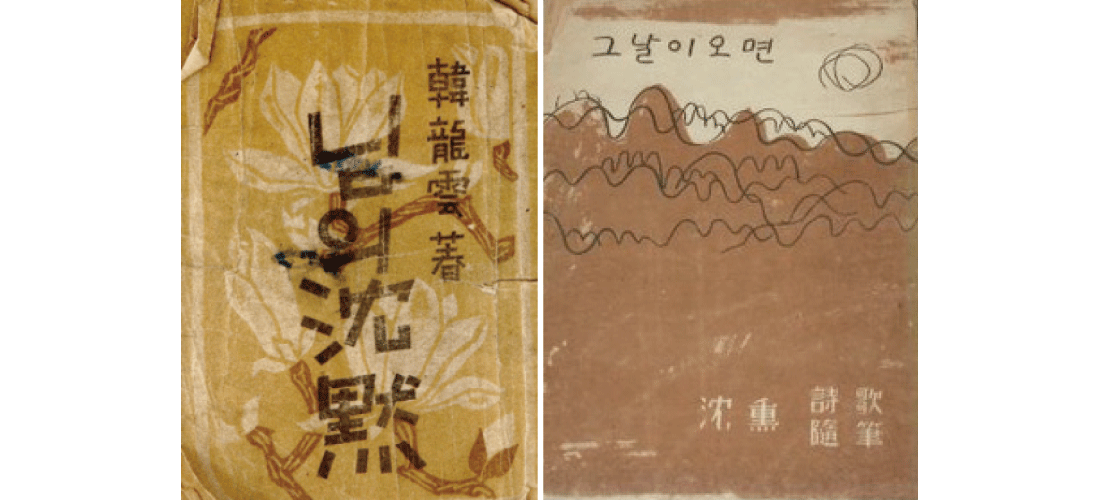 韓龍雲 著
님의 沈默
그날이오면
沈熏
詩歌
隨筆